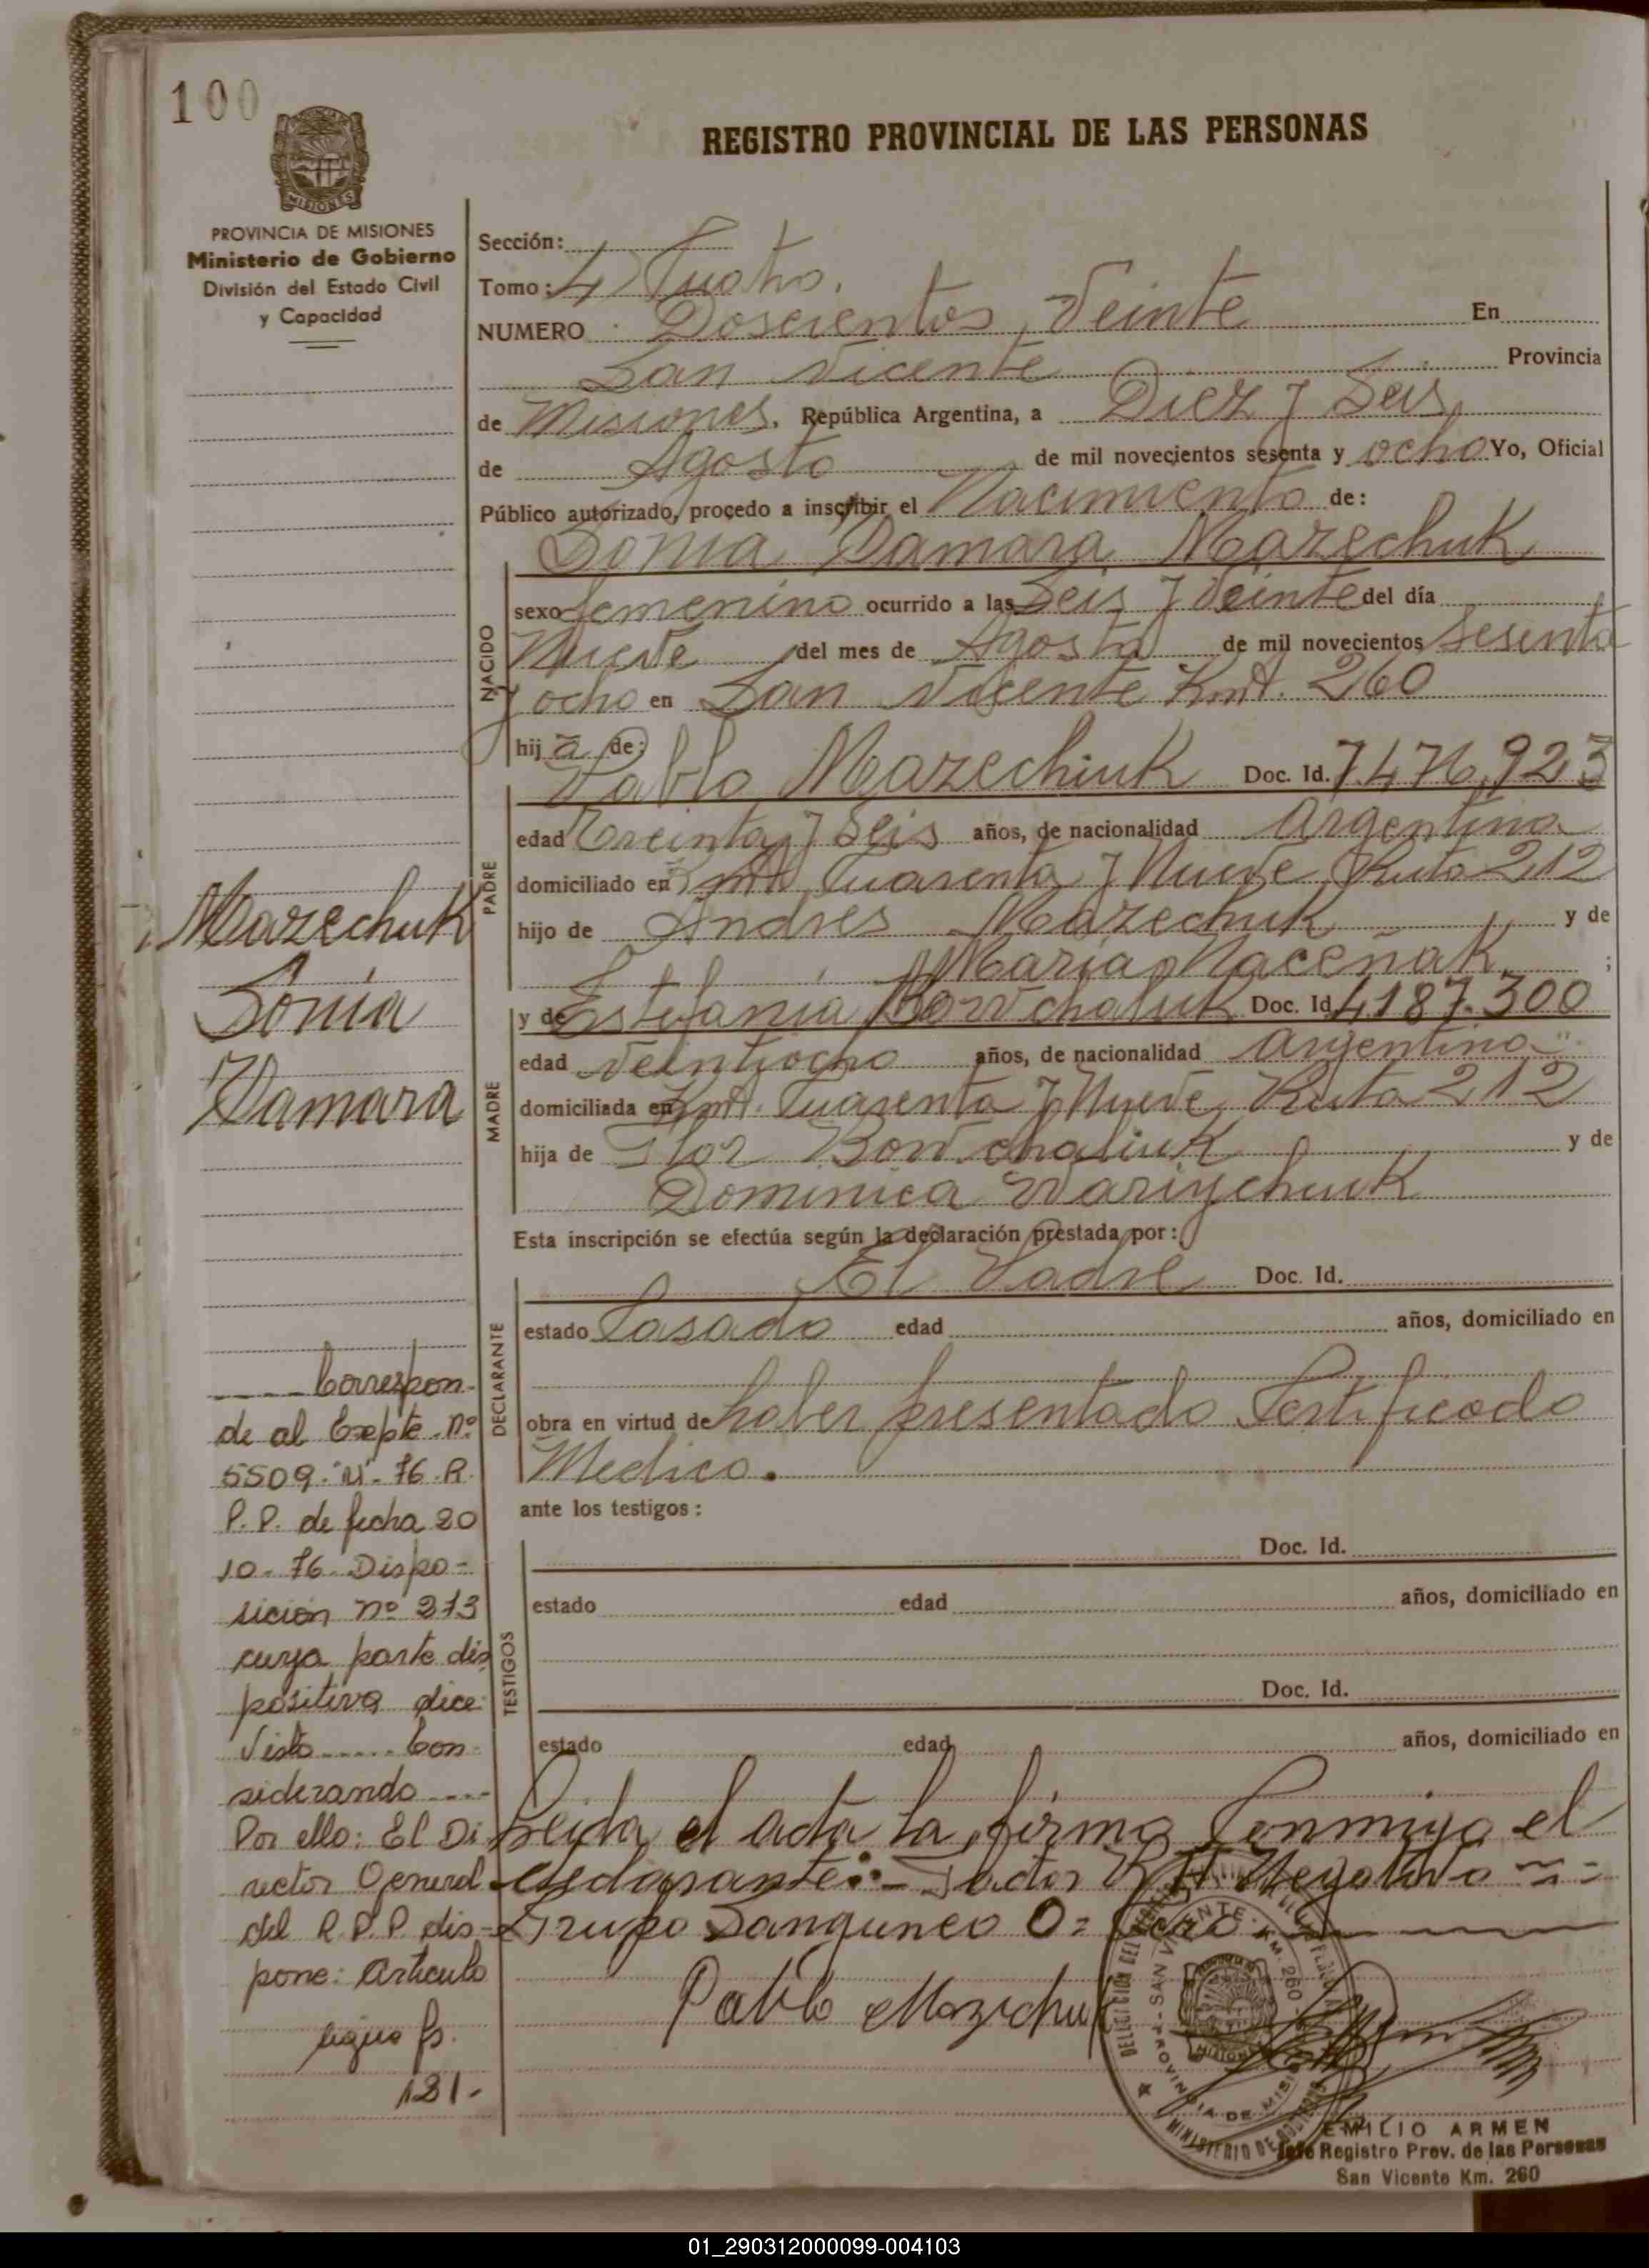 100
REGISTRO PROVINCIAL DE LAS PERSONAS
PROVINCIA DE MISIONES
Ministerio de Gobierno
División del Estado Civil
y Capacidad
Sección:
Tomo: 4) Cuatro.
NUMERO Doscientos, Veinte En
San Vicente Provincia
de Misiones. República Argentina, a Diez y Seis,
de Agosto de mil novecientos sesenta y ocho Yo, Oficial
Público autorizado, procedo a inscribir el Nacimiento de:
Sonia Damara Mazechuk
NACIDO
sexo femenino ocurrido a las Seis y Veinte del día
Nueve del mes de Agosto de mil novecientos Sesenta
y ocho en San Vicente Kmt. 260
hij a de:
Pablo Mazechiuk Doc. Id. 7.476.923
PADRE
edad Treinta y Seis años, de nacionalidad Argentina
domiciliado en Kmt. Cuarenta y Nueve, Ruta 212
hijo de Andres Mazechuk y de
Maria Maceñak ;
y de Estefania Bowchaluk Doc. Id. 4187.300
MADRE
edad Veintiocho años, de nacionalidad Argentina
domiciliada en Kmt. Cuarenta y Nueve, Ruta 212
hija de Flor Bowchaliuk y de
Dominica Wariychuk
Esta inscripción se efectúa según la declaración prestada por:
El Padre Doc. Id.
DECLARANTE
estado Casado edad años, domiciliado en
obra en virtud de haber presentado Certificado
Medico.
ante los testigos:
Doc. Id.
TESTIGOS
estado edad años, domiciliado en
Doc. Id.
estado edad años, domiciliado en
Leida el acta la firma Conmigo el
declarante:- Factor R H Negativo
Grupo Sanguineo O= Cero
Pablo Mazechuk
Mazechuk
Sonia
Damara
---- Correspon-
de al Expte. nº
5509-"M"-76-R.
P.P. de fecha 20
10-76-Dispo-
sición nº 273
cuya parte dis
positiva dice:
Visto..... Con-
siderando ....
Por ello: El Di-
rector General
del R.P.P. dis-
pone: Articulo
sigue fs.
131-
SAN VICENTE - KM. 260
PROVINCIA DE MISIONES
MINISTERIO DE GOBIERNO
MISIONES
EMILIO ARMEN
Jefe Registro Prov. de las Personas
San Vicente Km. 260
01_290312000099-004103